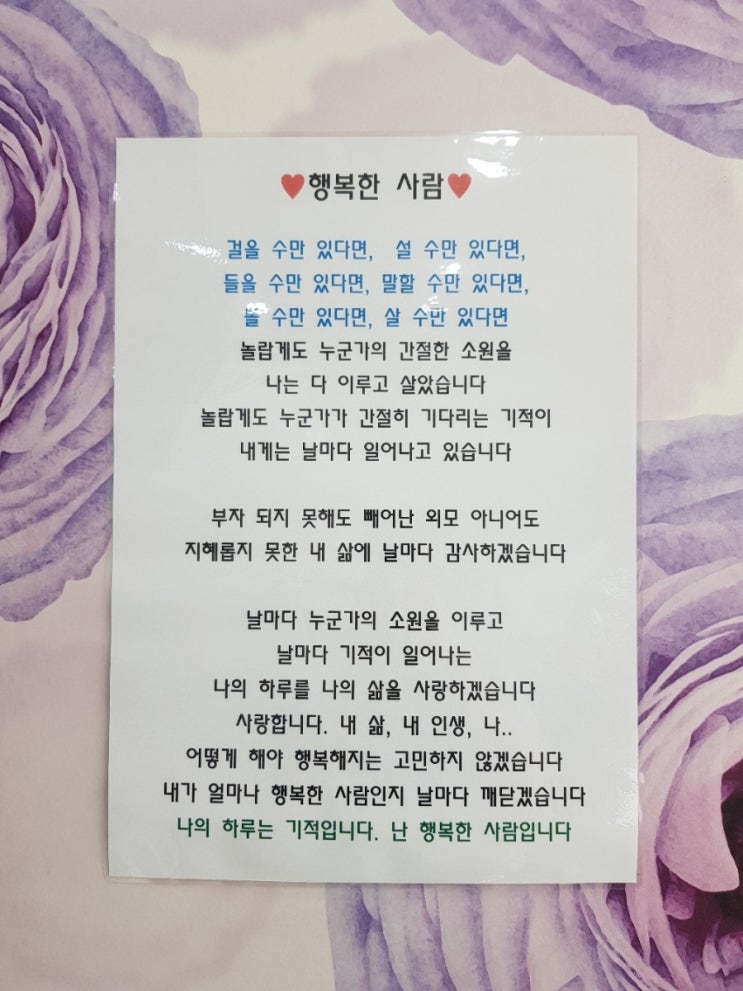 ♥행복한 사람♥
걸을 수만 있다면, 설 수만 있다면,
들을 수만 있다면, 말할 수만 있다면,
볼 수만 있다면, 살 수만 있다면
놀랍게도 누군가의 간절한 소원을
나는 다 이루고 살았습니다
놀랍게도 누군가가 간절히 기다리는 기적이
내게는 날마다 일어나고 있습니다
부자 되지 못해도 빼어난 외모 아니어도
지혜롭지 못한 내 삶에 날마다 감사하겠습니다
날마다 누군가의 소원을 이루고
날마다 기적이 일어나는
나의 하루를 나의 삶을 사랑하겠습니다
사랑합니다. 내 삶, 내 인생, 나..
어떻게 해야 행복해지는 고민하지 않겠습니다
내가 얼마나 행복한 사람인지 날마다 깨닫겠습니다
나의 하루는 기적입니다. 난 행복한 사람입니다